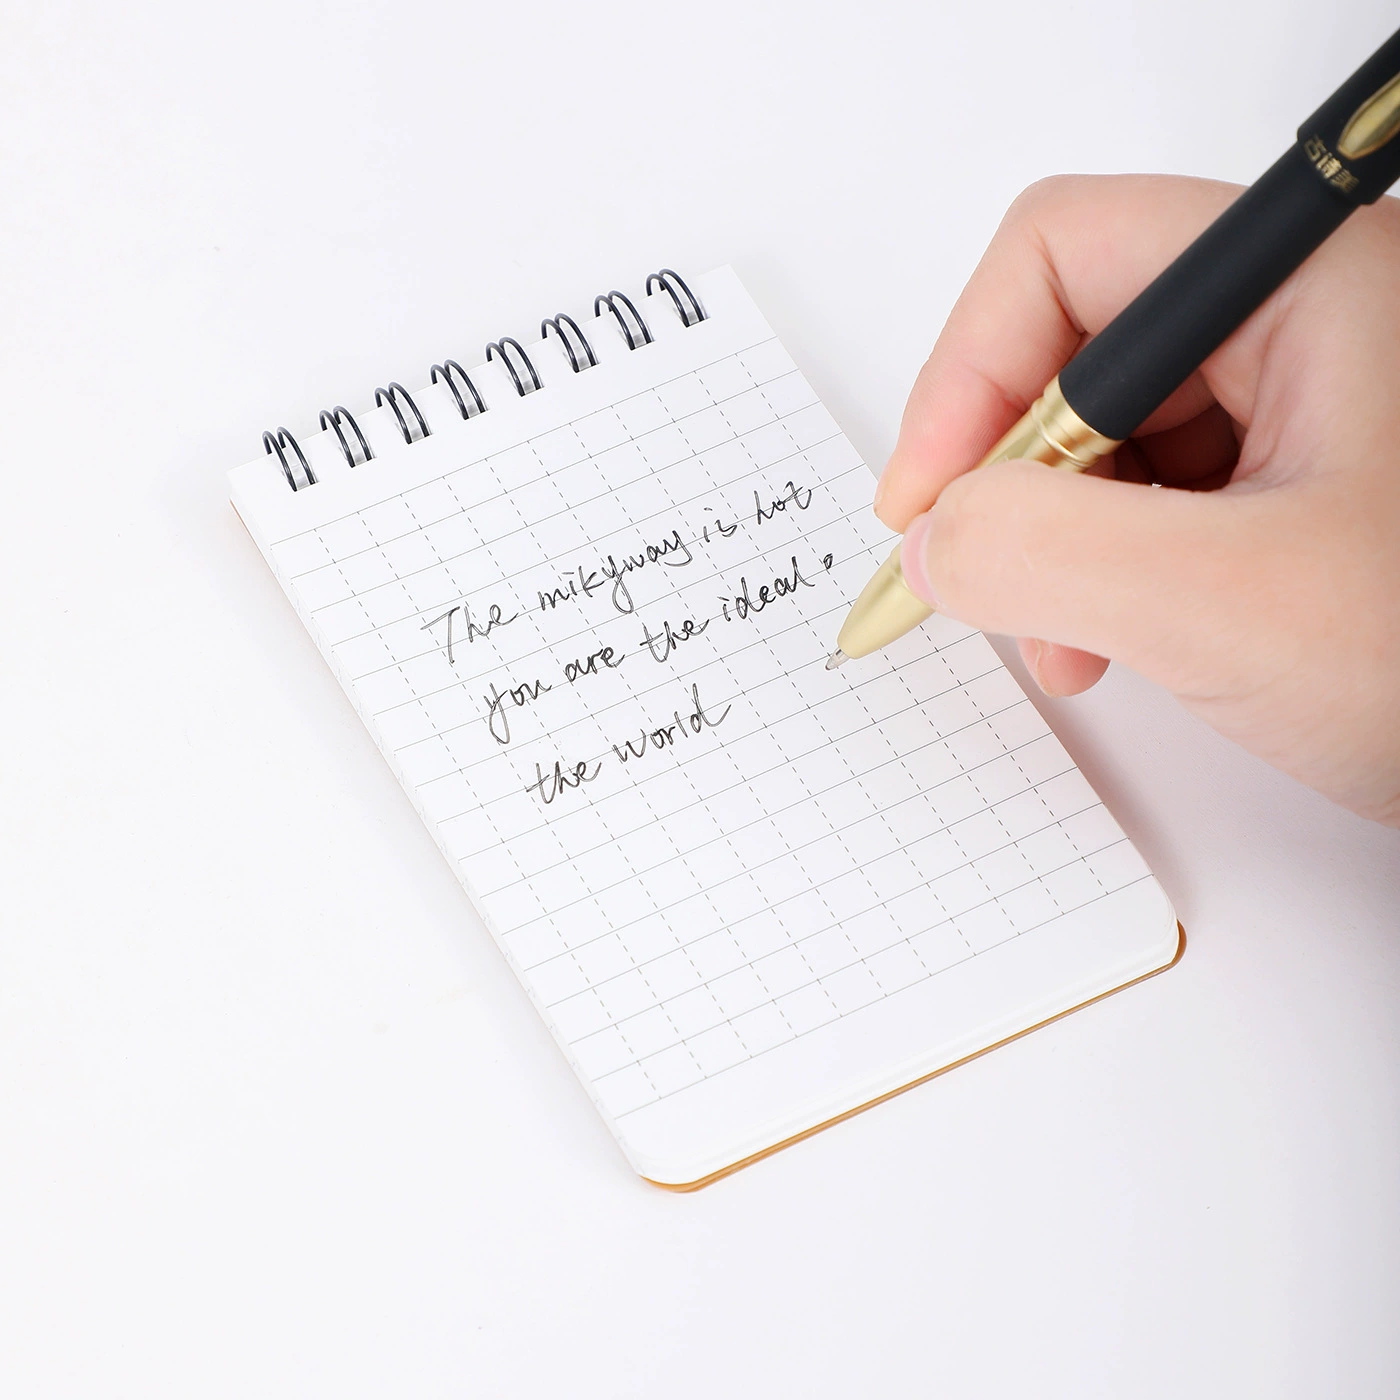 The mikyway is hot
you are the ideal.
the world
古诗美